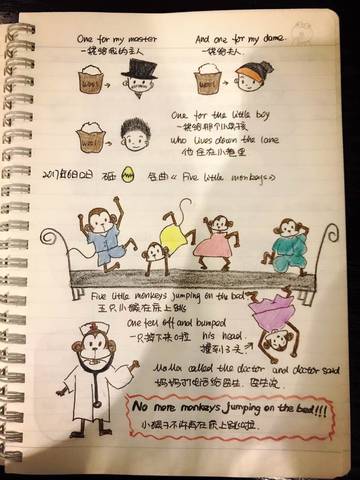 One for my master
And one for my dame.
一袋给我的主人
一袋给夫人.
wool
wool
wool
One for the little boy
一袋给那个小男孩
who lives down the lane
他住在小巷里
名曲《Five little monkeys》
Five little monkeys jumping on the bed
五只小猴在床上跳
one fell off and bumped
his head.
Mama called the doctor and doctor said
妈妈打电话给医生. 医生说.
No more monkeys jumping on the bed!!!
小猴子不许再在床上跳啦.